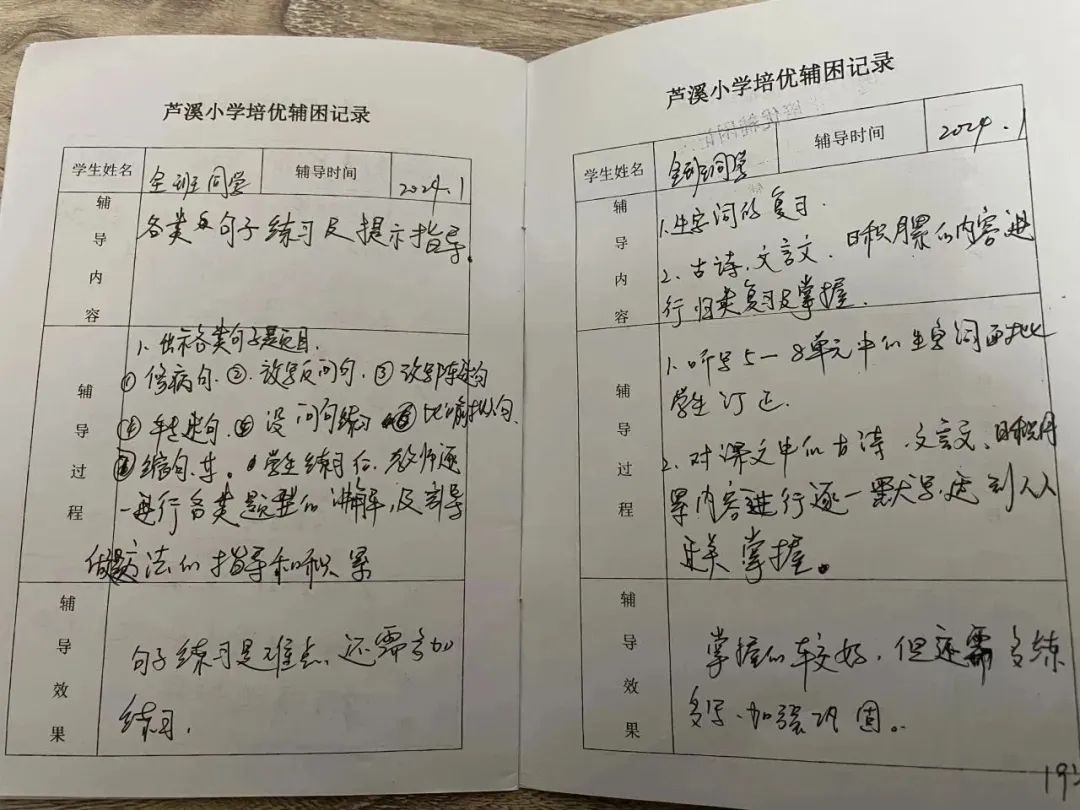 芦溪小学培优辅困记录
学生姓名 全班同学 辅导时间 2024.1
辅导内容
各类句子练习及提示指导。
辅导过程
1、出示各类句子题目.
①修病句.②.改写反问句.③改写陈述句
④造句.⑤设问句练习⑥比喻拟人句
缩句.等。学生练习后.老师逐
一进行各类题型的讲解,及
做题方法的指导和积累
辅导效果
句子练习是难点.还需多加
练习.
芦溪小学培优辅困记录
学生姓名 全班同学 辅导时间 2024.1
辅导内容
1.生字词的复习.
2.古诗.文言文.日积月累的内容进
行归类复习及掌握.
辅导过程
1.听写5-8单元中的生字词
学生订正.
2.对课文中的古诗.文言文、日积月
累内容进行逐一默写,达到人人
过关掌握。
辅导效果
掌握的较好,但还需多练
多写.加强巩固。
19